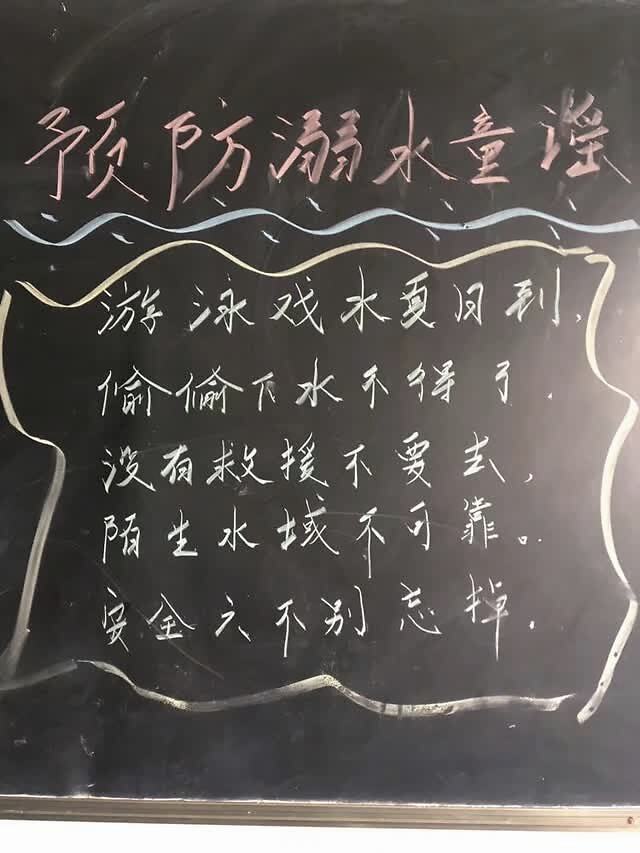 预防溺水童谣
游泳戏水夏日到,
偷偷下水不得了.
没有救援不要去,
陌生水域不可靠。
安全六不别忘掉.